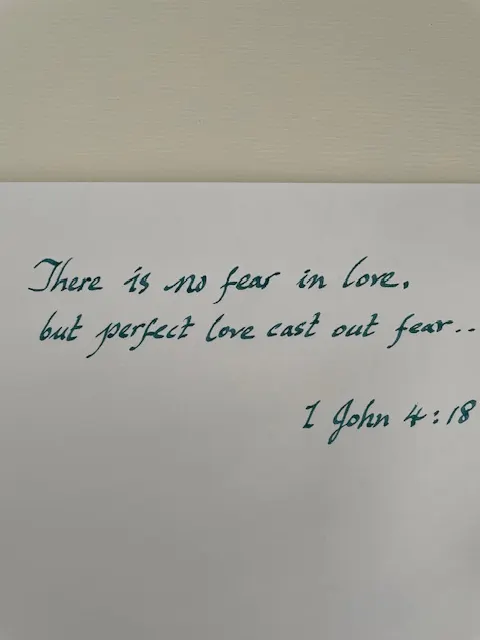 There is no fear in love.
but perfect love cast out fear..
1 John 4:18